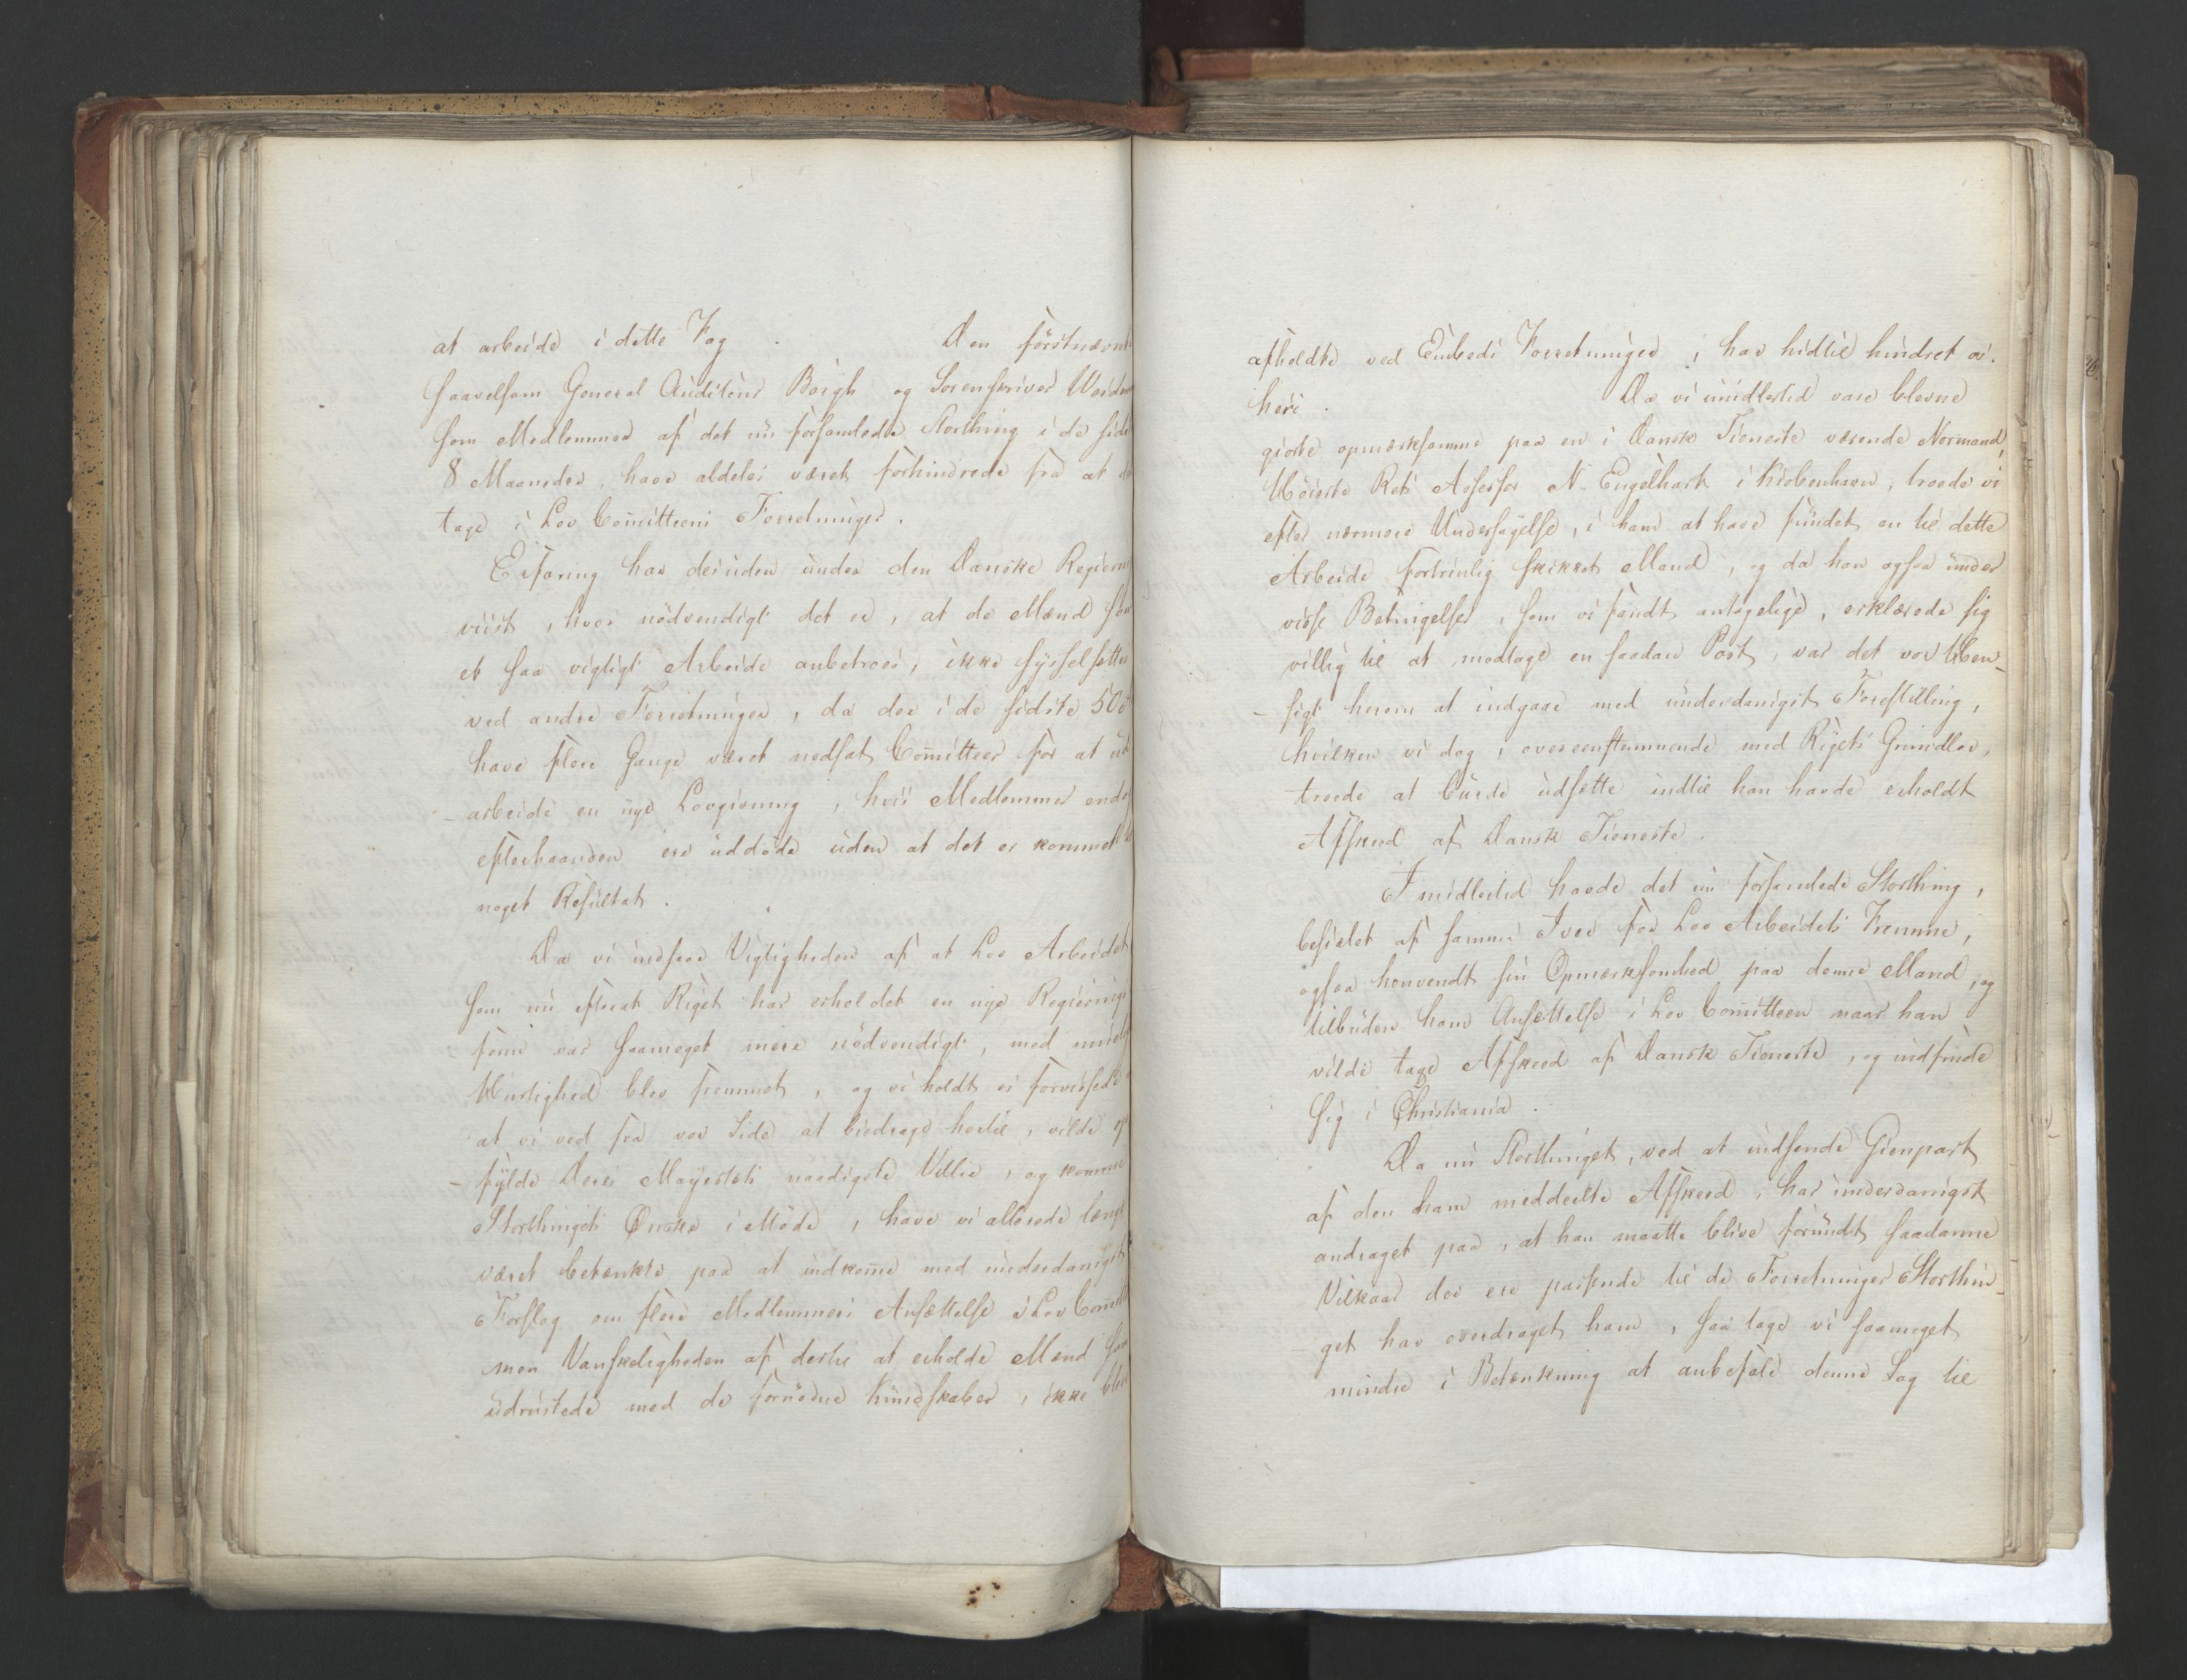 at arbeide i dette Fag . Den förstnævnt
saavelsom General Auditeur Bergh og Sorenskriver Weide
som Medlemmer af det nu forsamlede Storthing i de sids
8 Maaneder, have aldeles været forhindrede fra at
tage i Lov Comitteens Forretninger.
Erfaring har desuden under den Danske Regjern
viist, hvor nödvendigt det er, at de Mænd som
et saa vigtigt Arbeide anbetroes, ikke sysselsættes
ved andre Forretninger, da der i de sidste 50
have flere Gange været nedsat Comitteer for at ud
-arbeide en nye Lovgivning, hvis Medlemmer endog
efterhaanden ere uddöde uden at det er kommet
noget Resultat.
Da vi indsaae Vigtigheden af at Lov Arbeidet
som nu efterat Riget har erholdet en nye Regierings
- form var saameget mere nödvendigt, med muelig
Hurtighed blev fremmet, og vi holdt os forvissede
at vi ved fra vor Side at bidrage hertil, vilde op
- fylde Deres Majestets naadigste Villie, og komme
Storthingets Önske i Möde, have vi allerede længe
været betænkte paa at indkomme med underdanigst
Forslag om flere Medlemmers Ansættelse i Lov Comitt
men Vanskeligheden af dertil at erholde Mænd som
udrustede med de fornödne Kundskaber, ikke bleve
afholdte ved Embeds Forretninger, har hidtil hindret os
heri . Da vi imidlertid vare blevne
giorte opmærksomme paa en i Dansk Tieneste værende Normand,
Höieste Rets Assessor N. Engelhart i Kiöbenhavn, troede vi
efter nærmere Undersögelse, i ham at have fundet en til dette
Arbeide fortrinlig skikket Mand, og da han ogsaa under
visse Betingelser, som vi fandt antagelige, erklærede sig
villig til at modtage en saadan Post, var det vor Hen-
- sigt herom at indgaae med underdanigst Forestilling,
hvilken vi dog, overeensstemmende med Rigets Grundlov,
troede at burde udsætte indtil han havde erholdt
Afskeed af Dansk Tieneste.
Imidlertid havde det nu forsamlede Storthing,
besielet af samme Iver for Lov Arbeidets Fremme,
ogsaa henvendt sin Opmærksomhed paa denne Mand, og
tilbuden ham Ansættelse i Lov Comitteen naar han
vilde tage Afskeed af Dansk Tieneste, og indfinde
sig i Christiania .
Da nu Storthinget, ved at indsende Gienpart
af den ham meddeelte Afskeed, har underdanigst
andraget paa, at han maatte blive forundt saadanne
Vilkaar der ere passende til de Forretninger Storthin-
- get har overdraget ham, saa tage vi saameget
mindre i Betænkning at anbefale denne Sag til